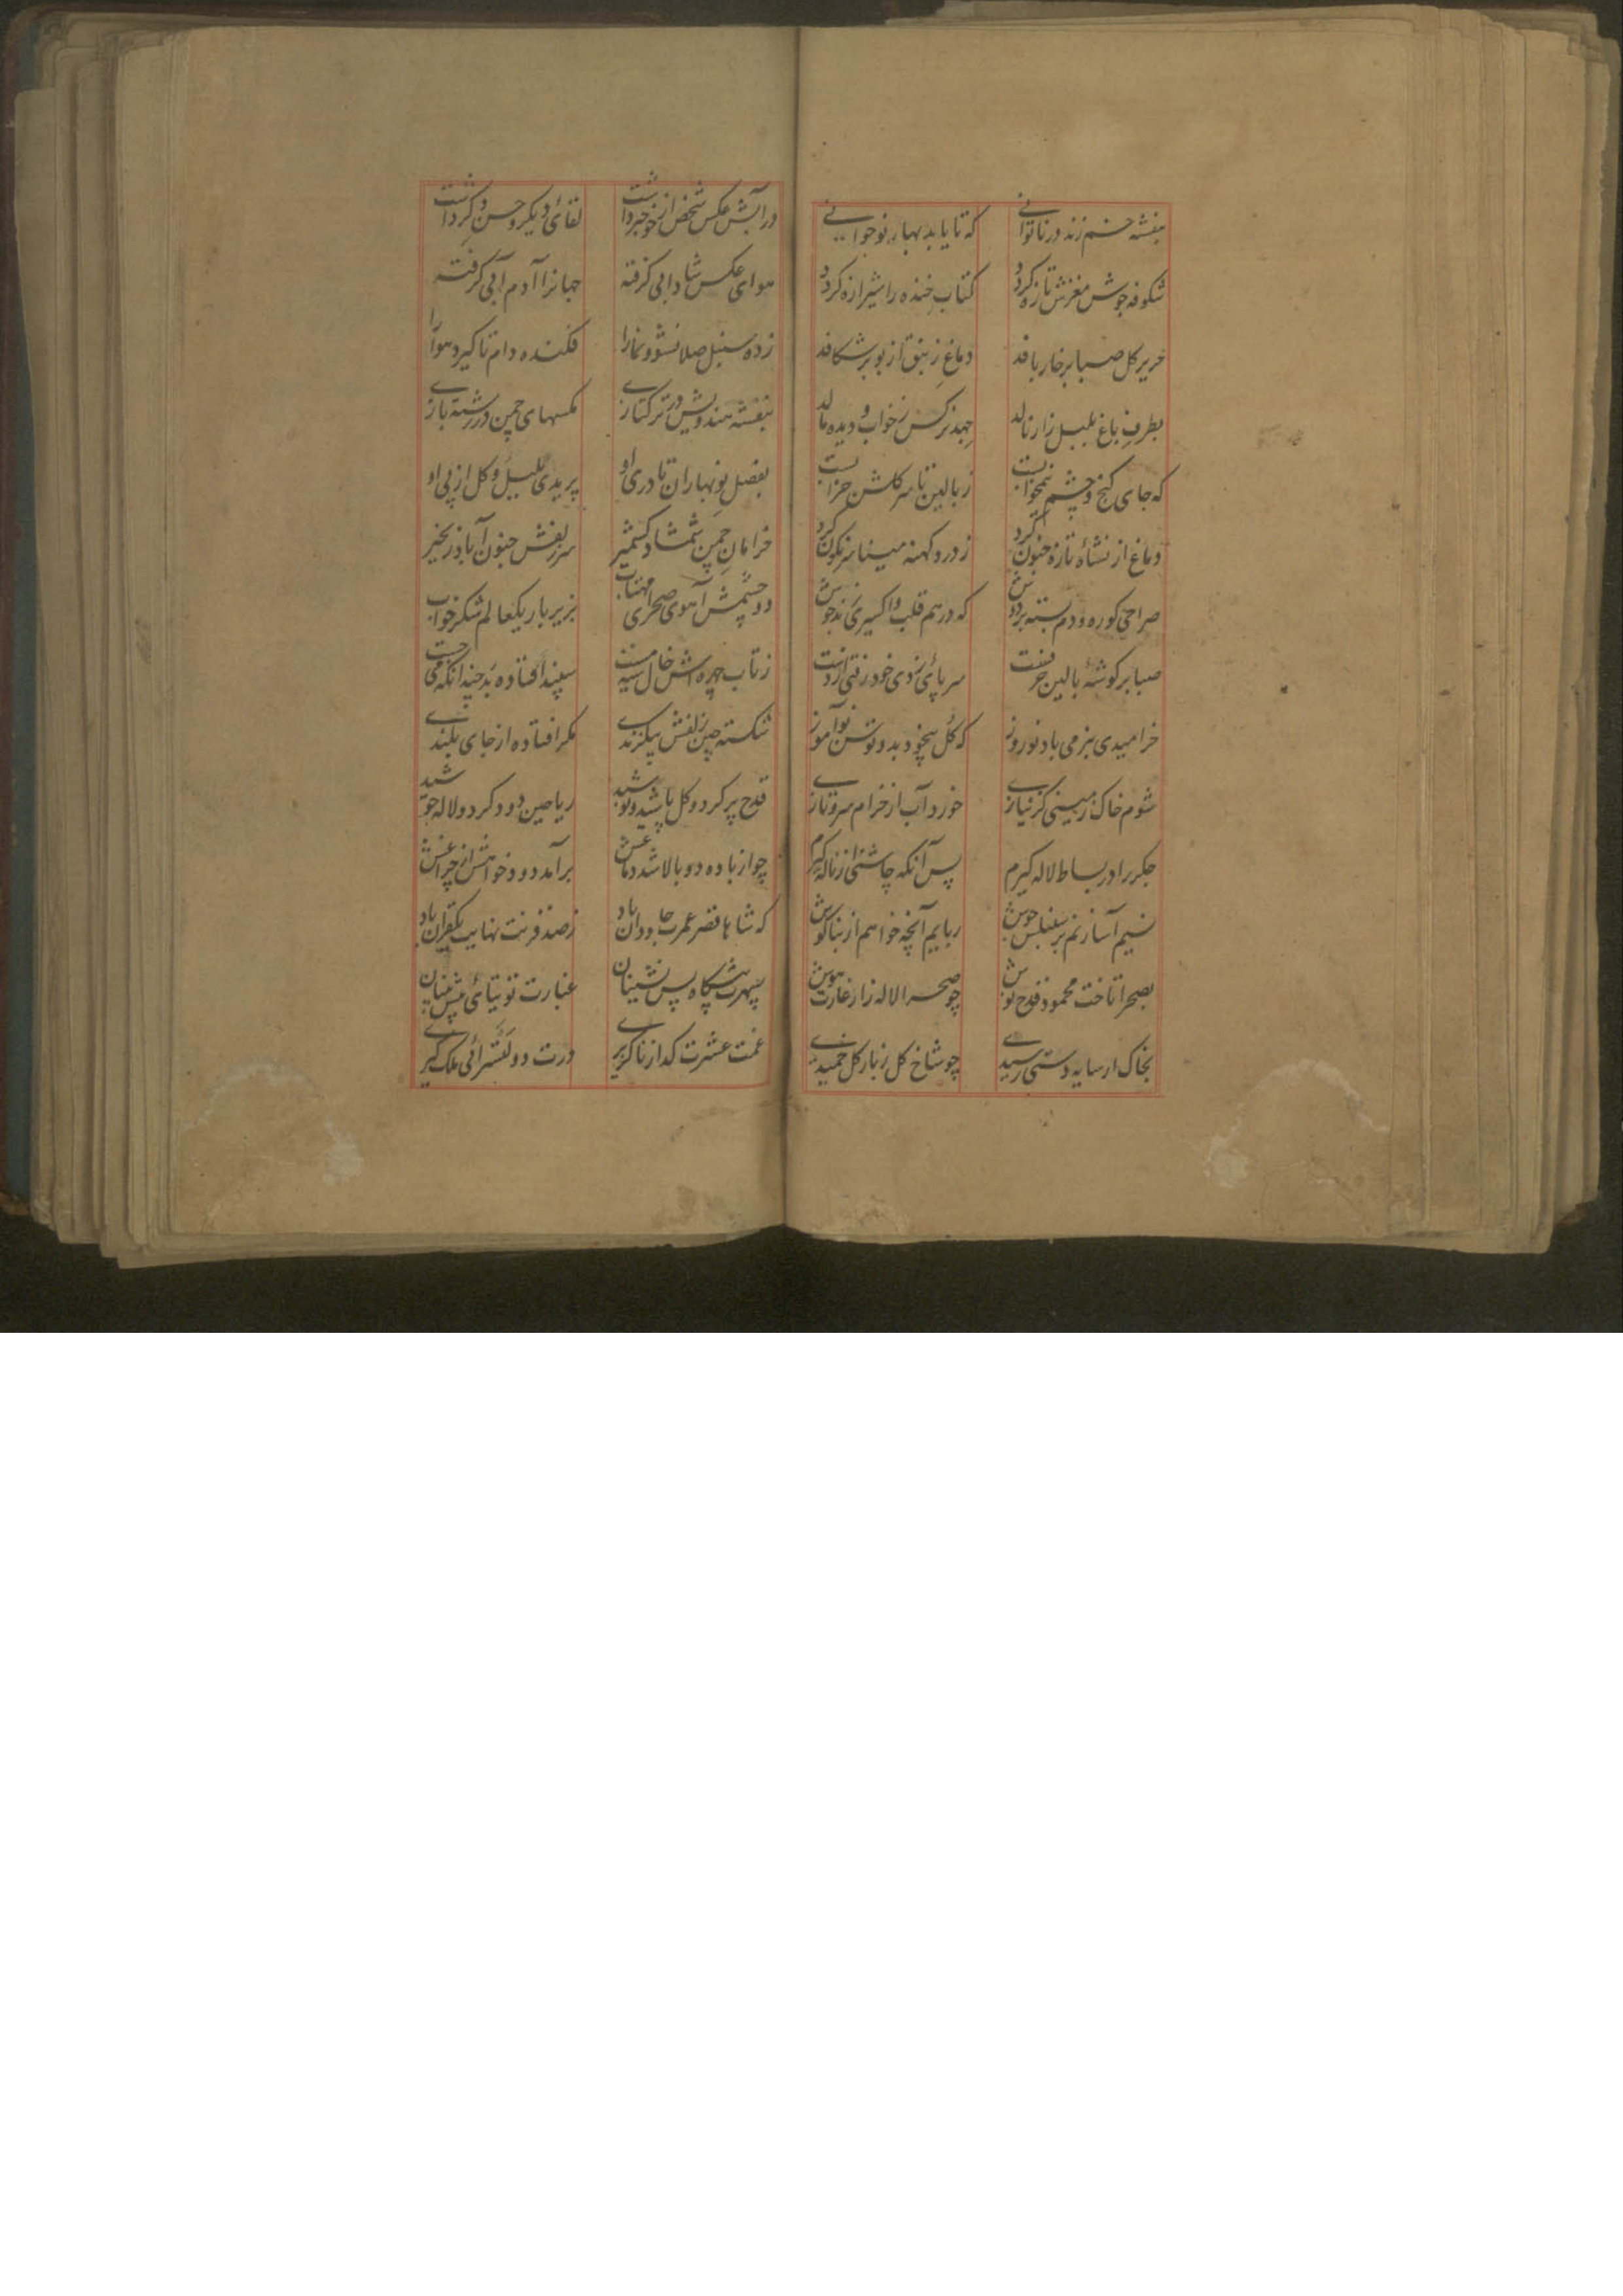 بنفشه خم زند در ناتوانی که تا یابد بهار نوجوانی
شکوفه جوش مغزش تازه کرد کتاب خنده را شیرازه کرد
حریر کل صبا بر خار بافد دماغ زنبق از بو بر شکافد
بطرف باغ بلبل زار نالد جهد نرکس ز خواب و دیده مالد
که جای کنج و چشم نیمخوابست ز بالین تا سر کلشن خرابست
دماغ از نشاه تازه جنون کرد ز درد کهنه مینا سرنکون کرد
صراحی کوره و دم بسته بر دوش که در هم قلب و اکسیری
صبا بر کوشهٔ بالین سر پای زدی خود رفتی از دست
خرامیدی بزمی باد نوروز که کل بیخود بد و توسن نوآموز
شوم خاک زمینی کز نیازی خورد آب از خرام سرو نازی
جکر را در بساط لاله کیرم پس آنکه چاشنی از ناله کیرم
نسیم آسا زنم بر سنبلش جوش ربایم آنچه خواهم از بناکوش
بصحرا تاخت محمود قدح نوش چو صحرا لاله زار غارت هوش
بخاک ار سایه دستی رسیدی چو شاخ کل ز بار کل خمیدی
در آبش عکس شخص از خود خبر داشت لقائی دیکر و حسن دکر داشت
هوای عکس شادابی کرفته جهانرا آدم آبی کرفته
زده سنبل صلا نشو و نما را فکنده دام تا کیرد هوا را
بنفشه هندویش در ترکتازی مکسهای چمن در رشته بازی
بفصل نوبهاران تا در او پریدی بلبل و کل از پی او
خرامان چمن شمشاد کشمیر سر زلفش جنون آباد زنجیر
دو چشمش آهوی صحرای مهتاب بزیر بار یکعالم شکر خواب
ز تاب چهره اش خال سیه مست سپند افتاده بد چندانکه می جست
شکسته چین زلفش بیکزندی مکر افتاده از جای بلندی
قدح پر کرد و کل پاشید و نوشید ریاحین دود کرد و لاله جوشید
چو از باده دو بالا شد دماغش برآمد دود خواهش از چراغش
که شاها قصر عمرت جاودان باد ز صد قرنت نهایت یکقران باد
سپهرت پیشکاه پس نشینان غبارت توتیائی پیش بینان
غمت عشرت کداز ناکزیری درت دولتسرائی ملک کیری